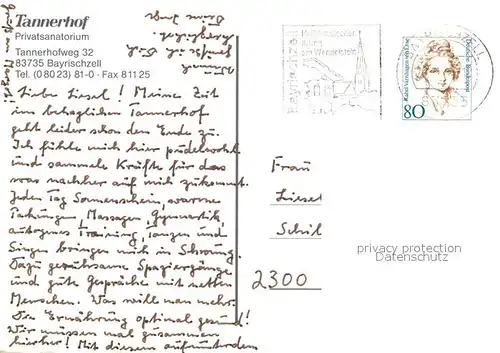 Tannerhof
Privatsanatorium
Tannerhofweg 32
83735 Bayrischzell
Tel. (0 80 23) 81-0 - Fax 811 25
Liebe Liesel! Meine Zeit
im behaglichen Tannerhof
geht leider schon dem Ende zu.
Ich fühle mich hier pudelwohl
und sammele Kräfte für das
was nachher auf mich zukommt.
Jeden Tag Sonnenschein, warme
Packungen, Massagen, Gymnastik,
autogenes Training, Tanzen und
Singen bringen mich in Schwung.
Dazu geruhsame Spaziergänge
und gute Gespräche mit netten
Menschen. Was will man mehr.
Die Ernährung optimal gesund!
Wir müssen mal zusammen
hierher! Mit diesem
Deine
grüßt Dich
Bayrischzell
am Wendelstein
Deutsche Bundespost
80
Frau
Liesel
Schil
2300
privacy protection
Datenschutz